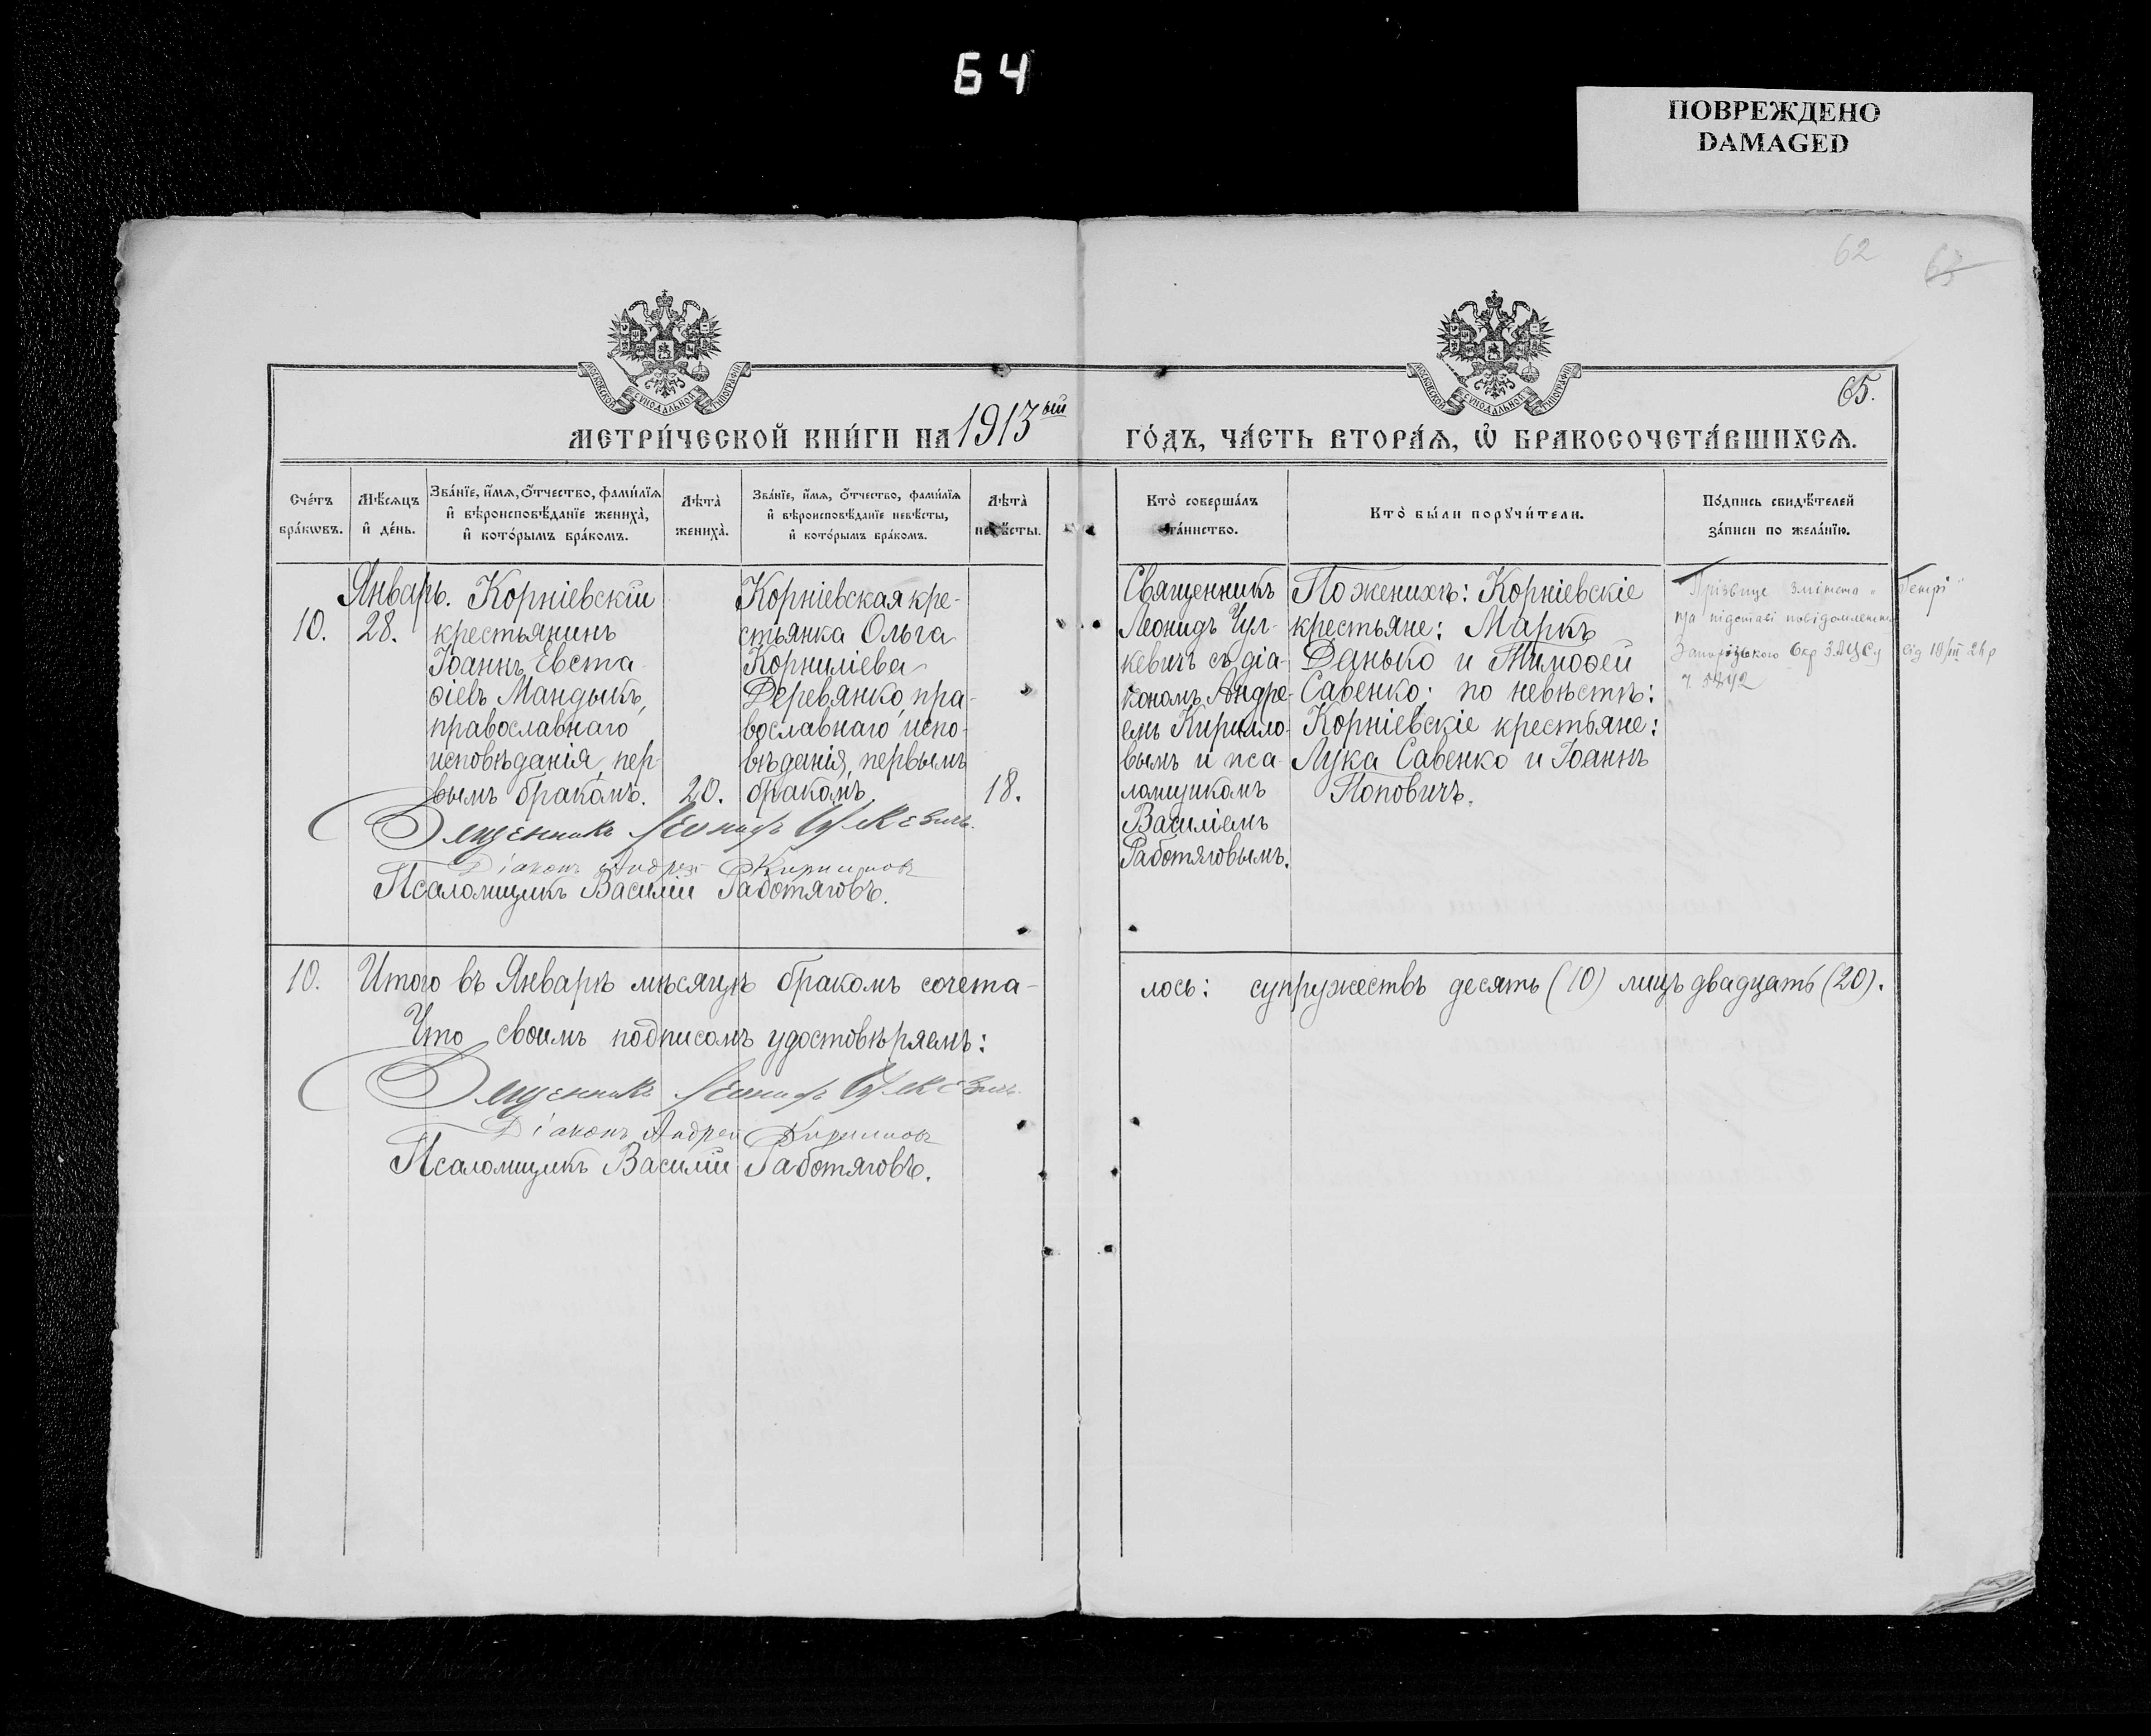 64
ПОВРЕЖДЕНО
DAMAGED
62
63
МОСКОВСКОЙ СѴНОДАЛЬНОЙ ТИПОГРАФІИ
МОСКОВСКОЙ СѴНОДАЛЬНОЙ ТИПОГРАФІИ
65.
МЕТРИ́ЧЕСКОЙ КНИ́ГИ НА 1913ый
ГО́ДЪ, ЧА́СТЬ ВТОРА́Ѧ, Ѡ҆ БРАКОСОЧЕТА́ВШИХСѦ.
Сче́тъ
бра́кѡвъ.
Мѣ́сѧцъ
и҆ де́нь.
Зва́нїе, и҆́мѧ, ѻ҆́тчество, фами́лїѧ
и҆ вѣроисповѣ́данїе жениха̀,
и҆ кото́рымъ бра́комъ.
Лѣ́та̀
жениха̀.
Зва́нїе, и҆́мѧ, ѻ҆́тчество, фами́лїѧ
и҆ вѣроисповѣ́данїе невѣ́сты,
и҆ кото́рымъ бра́комъ.
Лѣ́та̀
невѣ́сты.
Кто̀ соверша́лъ
та́инство.
Кто̀ бы́ли порꙋчи́тели.
По́дпись свидѣ́телей
за́писи по жела́нїю.
10.
Январь.
28.
Корніевскій
крестьянинъ
Іоаннъ Евста-
ѳіевъ Мандыкъ,
православнаго
исповѣданія, пер-
вымъ бракомъ.
20.
Корніевская кре-
стьянка Ольга
Корниліева
Деревянко, пра-
вославнаго испо-
вѣданія, первымъ
бракомъ.
18.
Священникъ
Леонидъ Чул-
кевичъ съ діа-
кономъ Андре-
емъ Кирилло-
вымъ и пса-
ломщикомъ
Василіемъ
Работяговымъ.
По женихѣ: Корніевскіе
крестьяне: Маркъ
Данько и Тимоѳей
Савенко; по невѣстѣ:
Корніевскіе крестьяне:
Лука Савенко и Іоаннъ
Поповичъ.
Прізвище змінено
на підставі повідомлення
Запорізького Окр ЗАЦСу від 19/III
ч. 5842
Священникъ Леонидъ Чулкевичъ.
Діаконъ Андрей Кирилловъ
Псаломщикъ Василій Работяговъ.
10. Итого въ Январѣ мѣсяцѣ бракомъ сочета-
лось: супружествъ десять (10) лицъ двадцать (20).
Что своимъ подписомъ удостовѣряемъ:
Священникъ Леонидъ Чулкевичъ.
Діаконъ Андрей Кирилловъ
Псаломщикъ Василій Работяговъ.